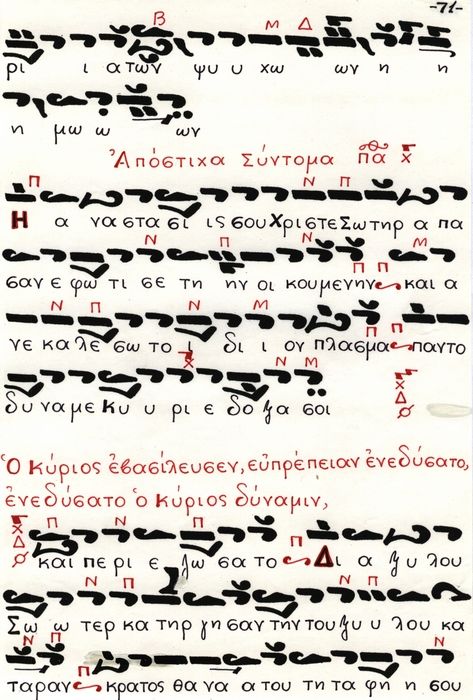 -71-
ρι ι ατων ψυ υ χω ων η η
η μω ω ων
Ἀπόστιχα Σύντομα πα
Η α νασ τα σι ις σου Χριστε Σωτηρ α πα
σαν ε φω τι σε τη ην οι κου μενην και α
νε κα λε σω το ι δι ι ον πλασμα παντο
δυ να με Κυ υ ρι ε δο ξα σοι
Ὁ Κύριος ἐβασίλευσεν, εὐπρέπειαν ἐνεδύσατο,
ἐνεδύσατο ὁ Κύριος δύναμιν,
και πε ρι ε ζω σα το Δι α ξυ λου
Σω ω τερ κα τηρ γη σαν την του ξυ υ λου κα
ταραν κρατος θα να α του τη τα φη η σου